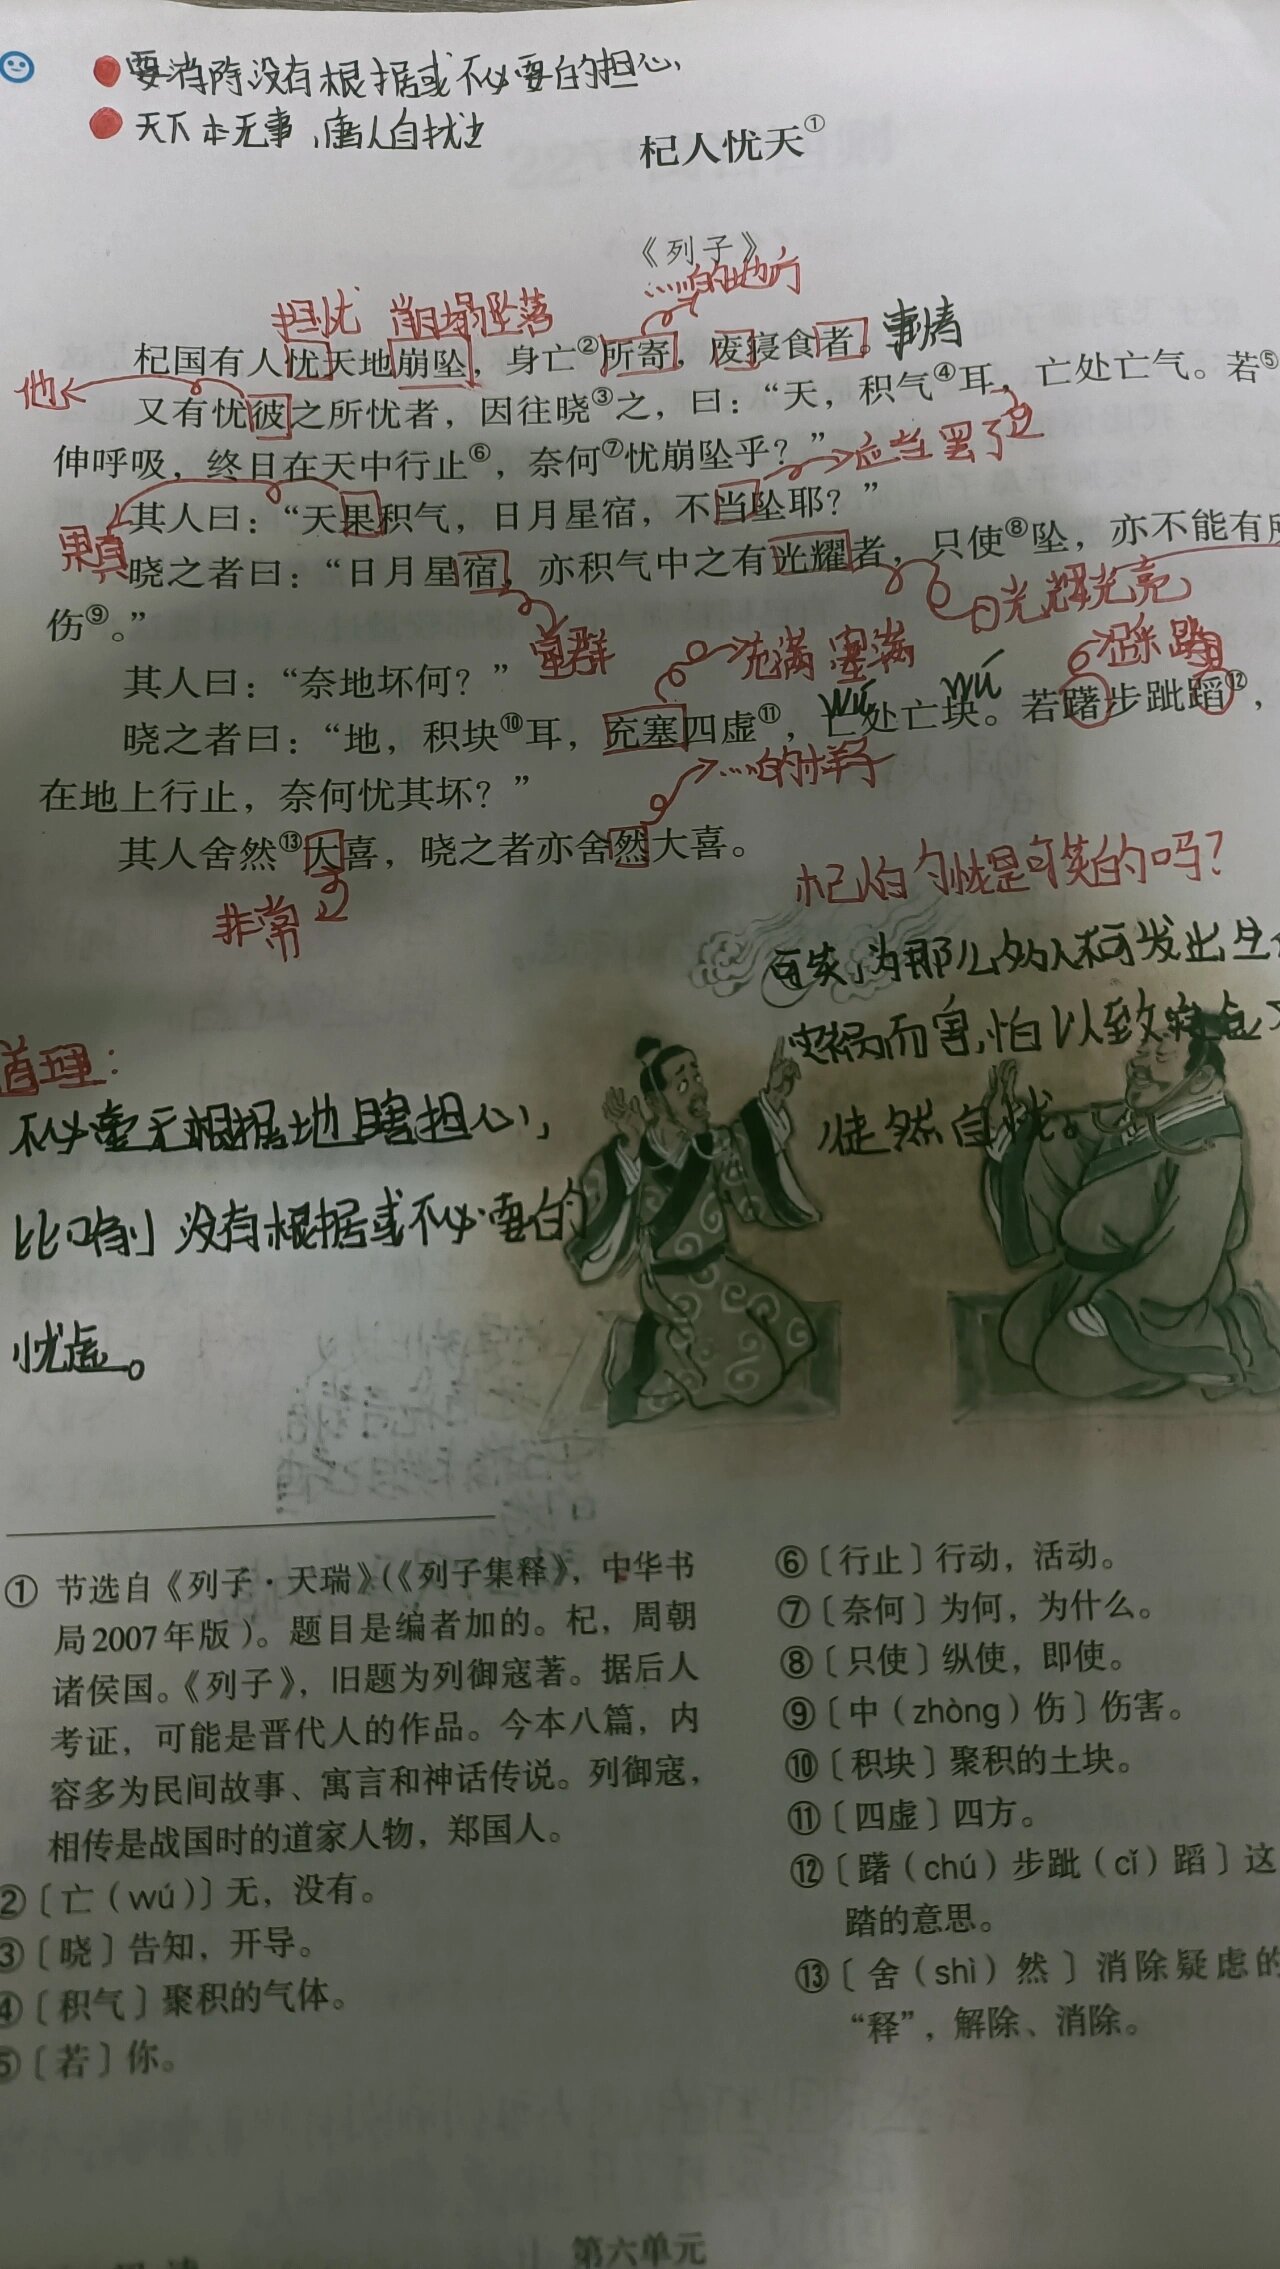 要消除没有根据或不必要的担心、
天下本无事,庸人自扰之
杞人忧天①
《列子》
……的地方
担忧 崩塌坠落
杞国有人忧天地崩坠,身亡②所寄,废寝食者。事情
他
又有忧彼之所忧者,因往晓③之,曰:“天,积气④耳,亡处亡气。若⑤
伸呼吸,终日在天中行止⑥,奈何⑦忧崩坠乎?”
应当 罢了
其人曰:“天果积气,日月星宿,不当坠耶?”
果真
晓之者曰:“日月星宿,亦积气中之有光耀者,只使⑧坠,亦不能有所
伤⑨。”
星群
充满 塞满
光辉光亮
踩踏
其人曰:“奈地坏何?”
wú wú
晓之者曰:“地,积块⑩耳,充塞四虚⑪,亡处亡块。若躇步跐蹈⑫,
……的样子
在地上行止,奈何忧其坏?”
其人舍然⑬大喜,晓之者亦舍然大喜。
非常
杞人的忧是可笑的吗?
可笑,为那么
而害怕以致
徒然自扰。
道理:
不必毫无根据地瞎担心,
比喻 没有根据或不必要的
忧虑。
① 节选自《列子·天瑞》(《列子集释》,中华书
局2007年版)。题目是编者加的。杞,周朝
诸侯国。《列子》,旧题为列御寇著。据后人
考证,可能是晋代人的作品。今本八篇,内
容多为民间故事、寓言和神话传说。列御寇,
相传是战国时的道家人物,郑国人。
②〔亡(wú)〕无,没有。
③〔晓〕告知,开导。
④〔积气〕聚积的气体。
⑤〔若〕你。
⑥〔行止〕行动,活动。
⑦〔奈何〕为何,为什么。
⑧〔只使〕纵使,即使。
⑨〔中(zhòng)伤〕伤害。
⑩〔积块〕聚积的土块。
⑪〔四虚〕四方。
⑫〔躇(chú)步跐(cǐ)蹈〕这
踏的意思。
⑬〔舍(shì)然〕消除疑虑的
“释”,解除、消除。
第六单元